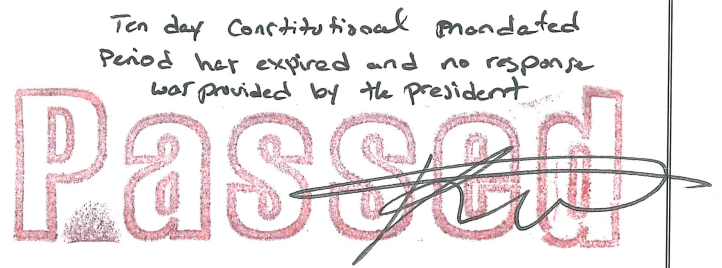 Ten day Constitutional mandated
Period has expired and no response
was provided by the president
Passed